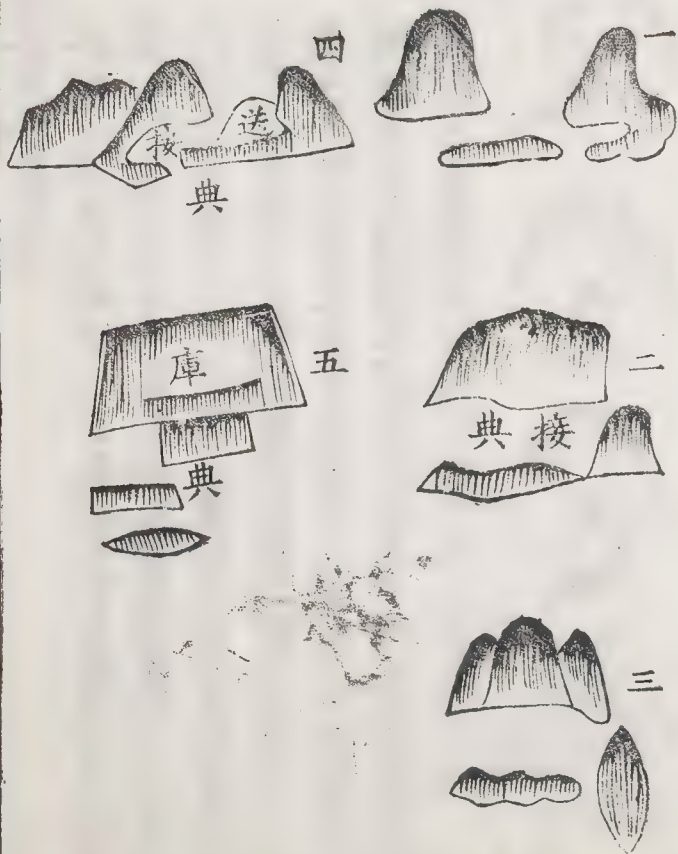 一
二
接典
三
四
送接
典
五
庫
典